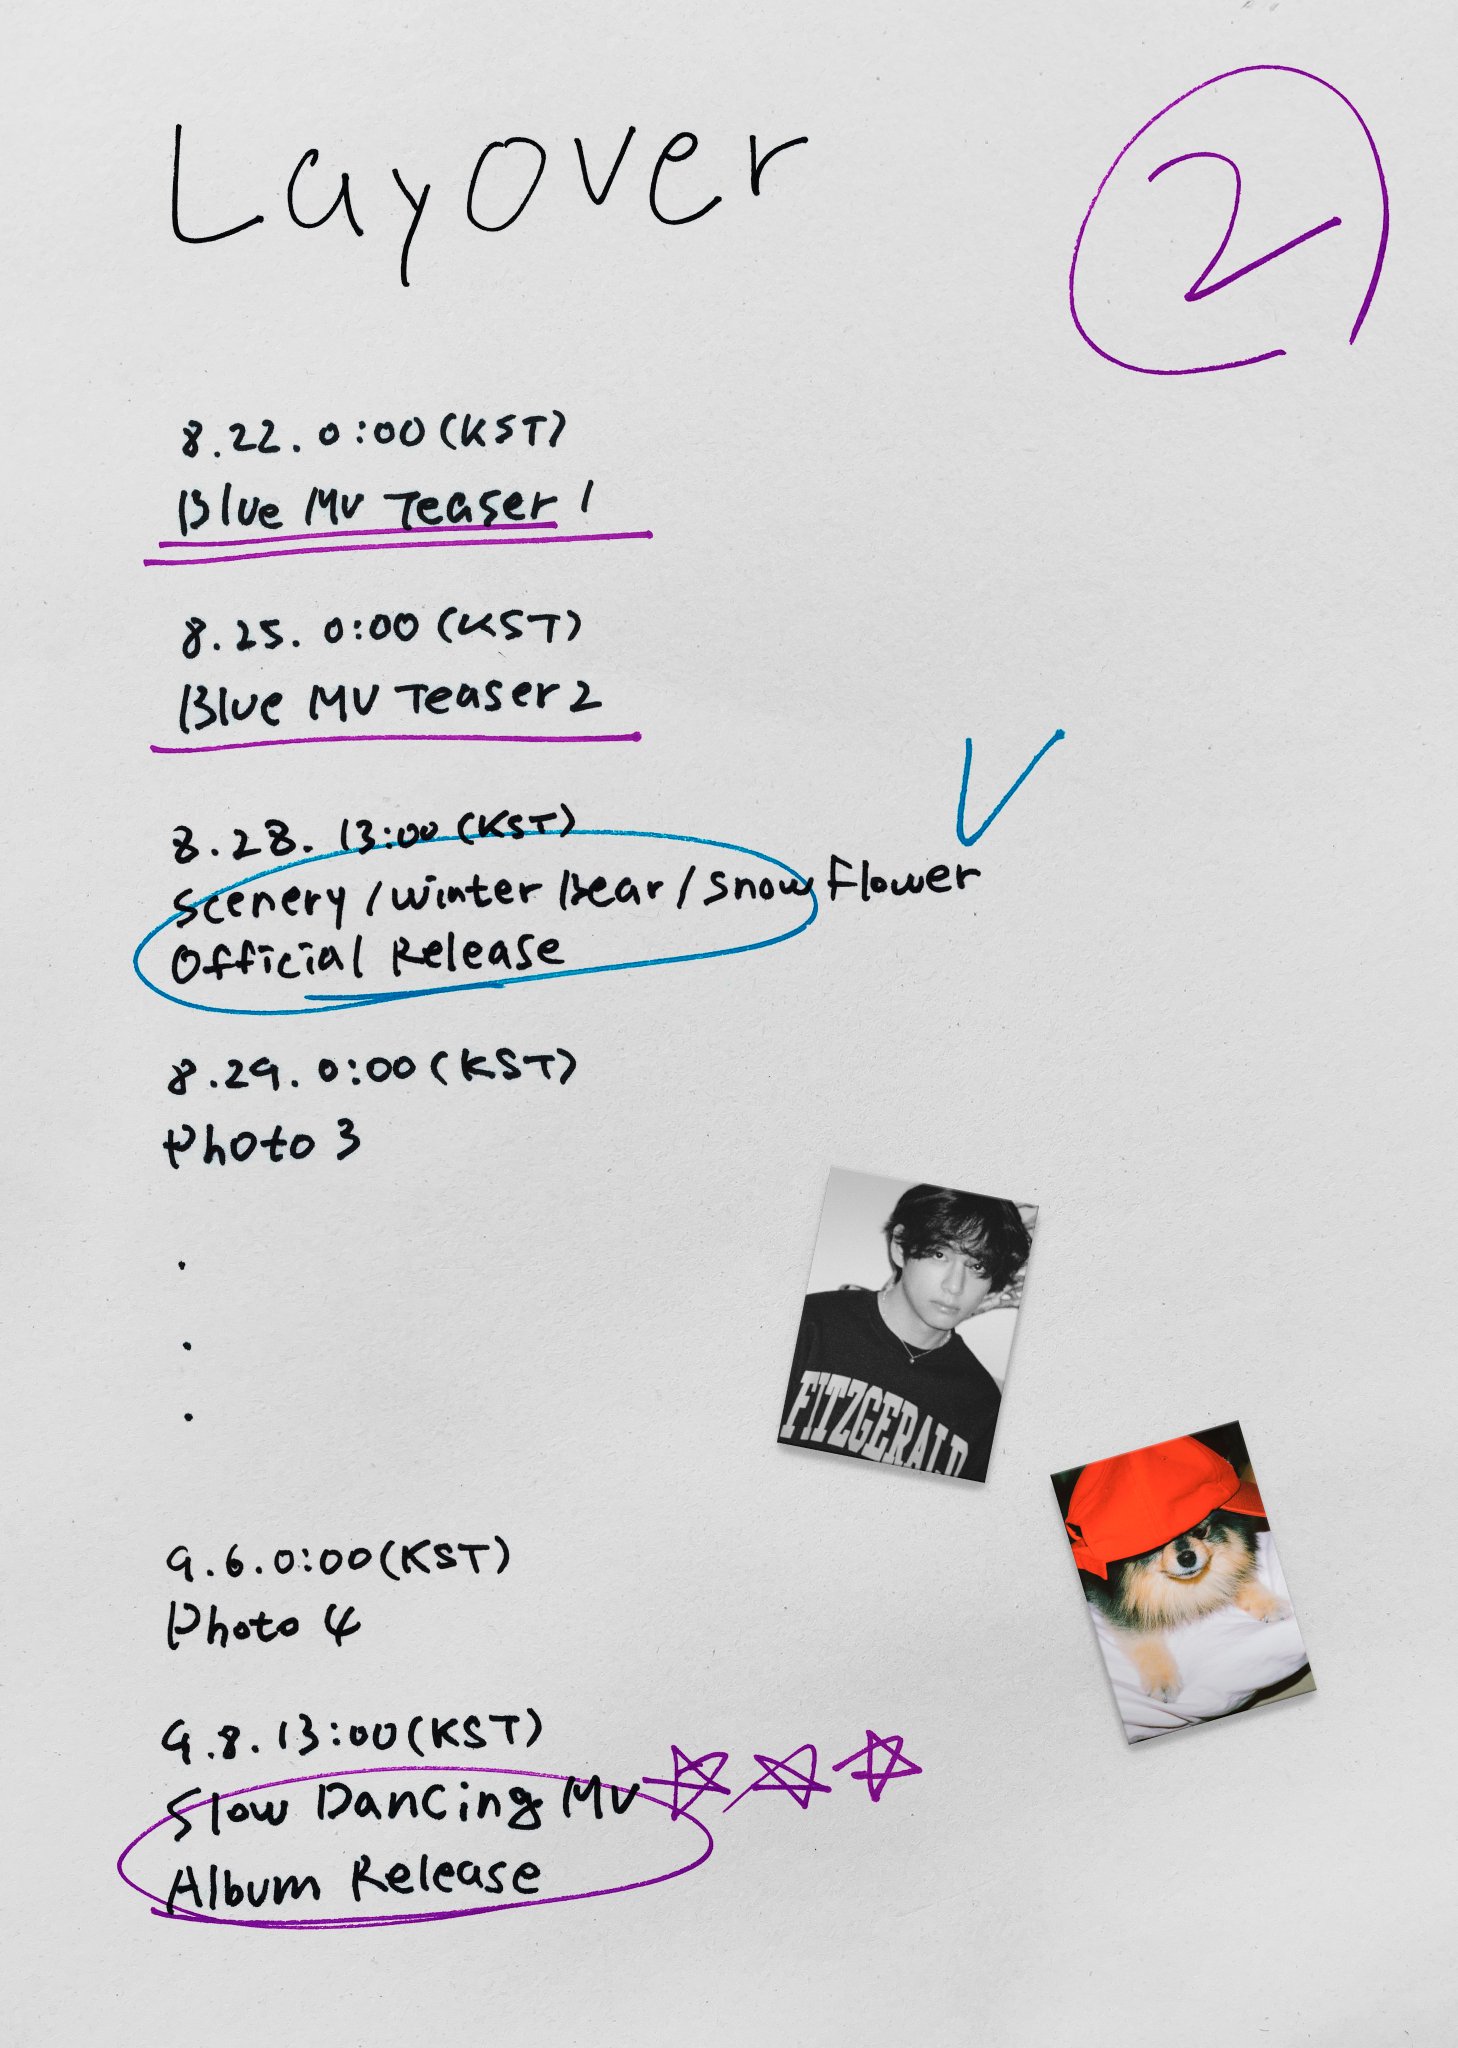 Layover
2
8.22. 0:00 (KST)
Blue MV Teaser 1
8.25. 0:00 (KST)
Blue MV Teaser 2
V
8.28. 13:00 (KST)
Scenery / Winter Bear / Snow Flower
Official Release
8.29. 0:00 (KST)
Photo 3
.
.
.
FITZGERALD
9.6. 0:00 (KST)
Photo 4
9.8. 13:00 (KST)
Slow Dancing MV ☆☆☆
Album Release